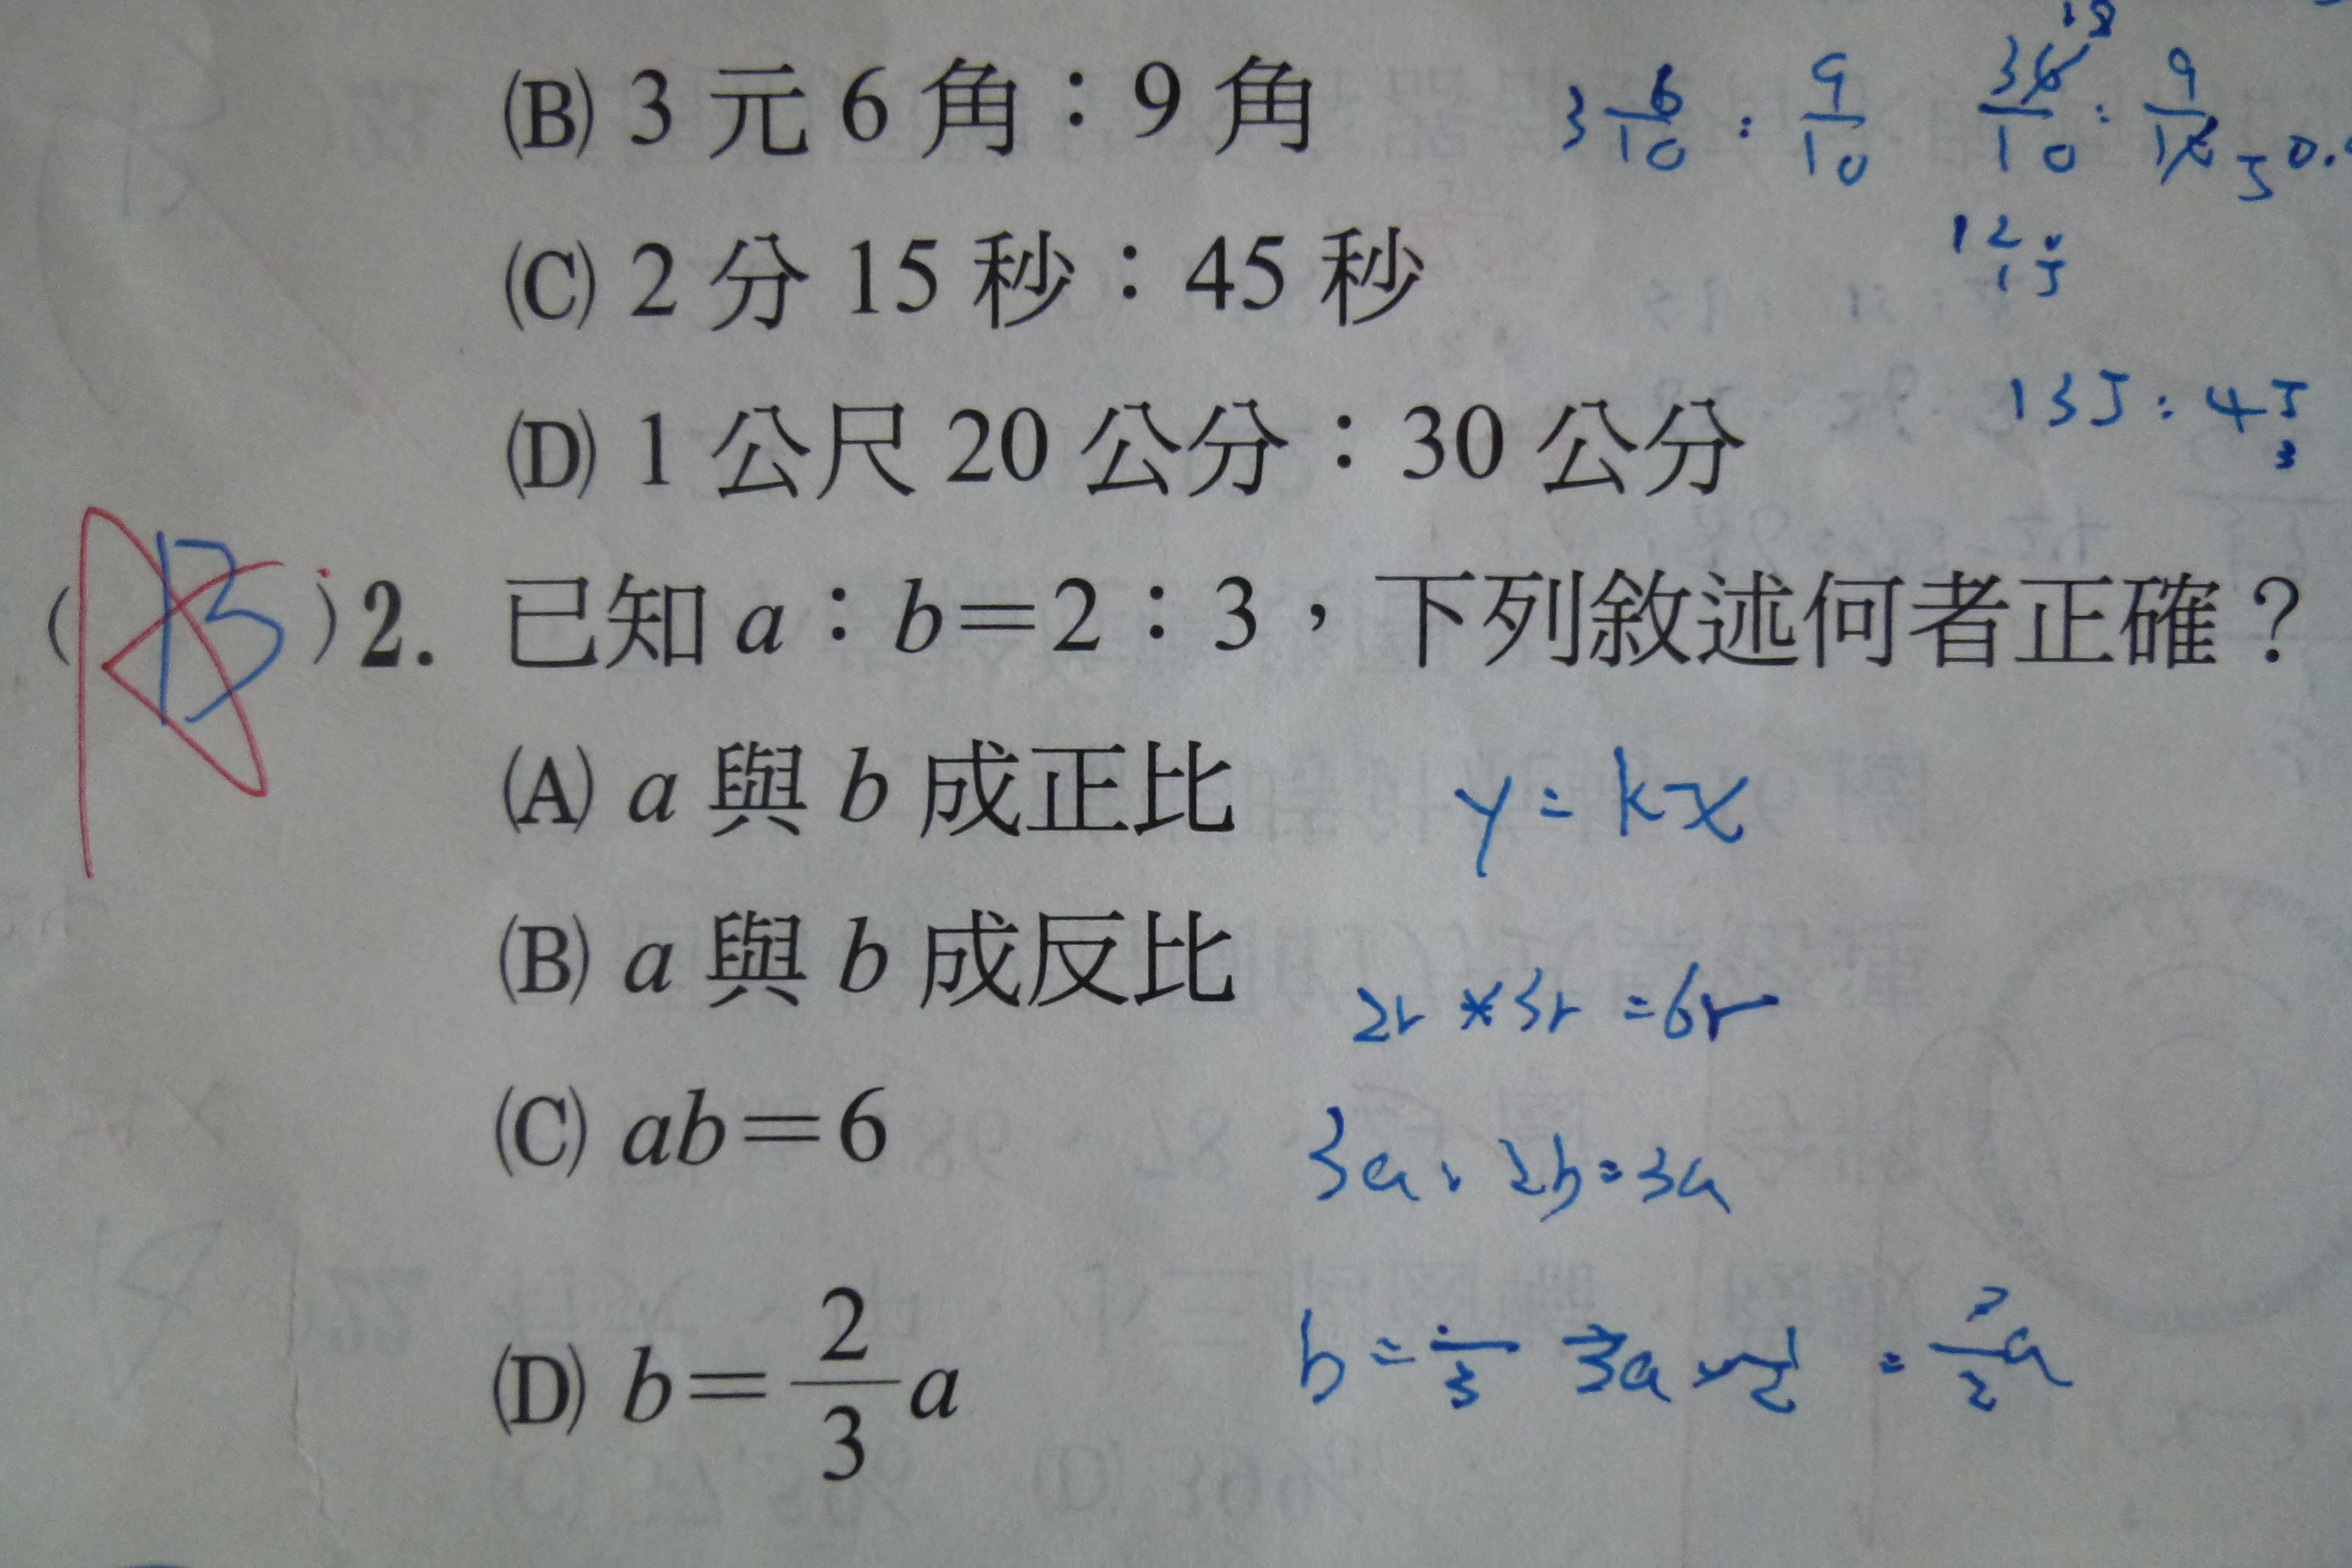 (B) 3 元 6 角：9 角 3 6/10 : 9/10 36/10 : 9/10 5 0.
18
12 :
15
(C) 2 分 15 秒：45 秒
135 : 45
3
(D) 1 公尺 20 公分：30 公分
( B ) 2. 已知 a：b＝2：3，下列敘述何者正確？
(A) a 與 b 成正比 y = kx
(B) a 與 b 成反比 2r * 3r = 6r
(C) ab＝6 2b = 3a
(D) b＝2/3 a b = 3a × 1/2 = 3/2 a